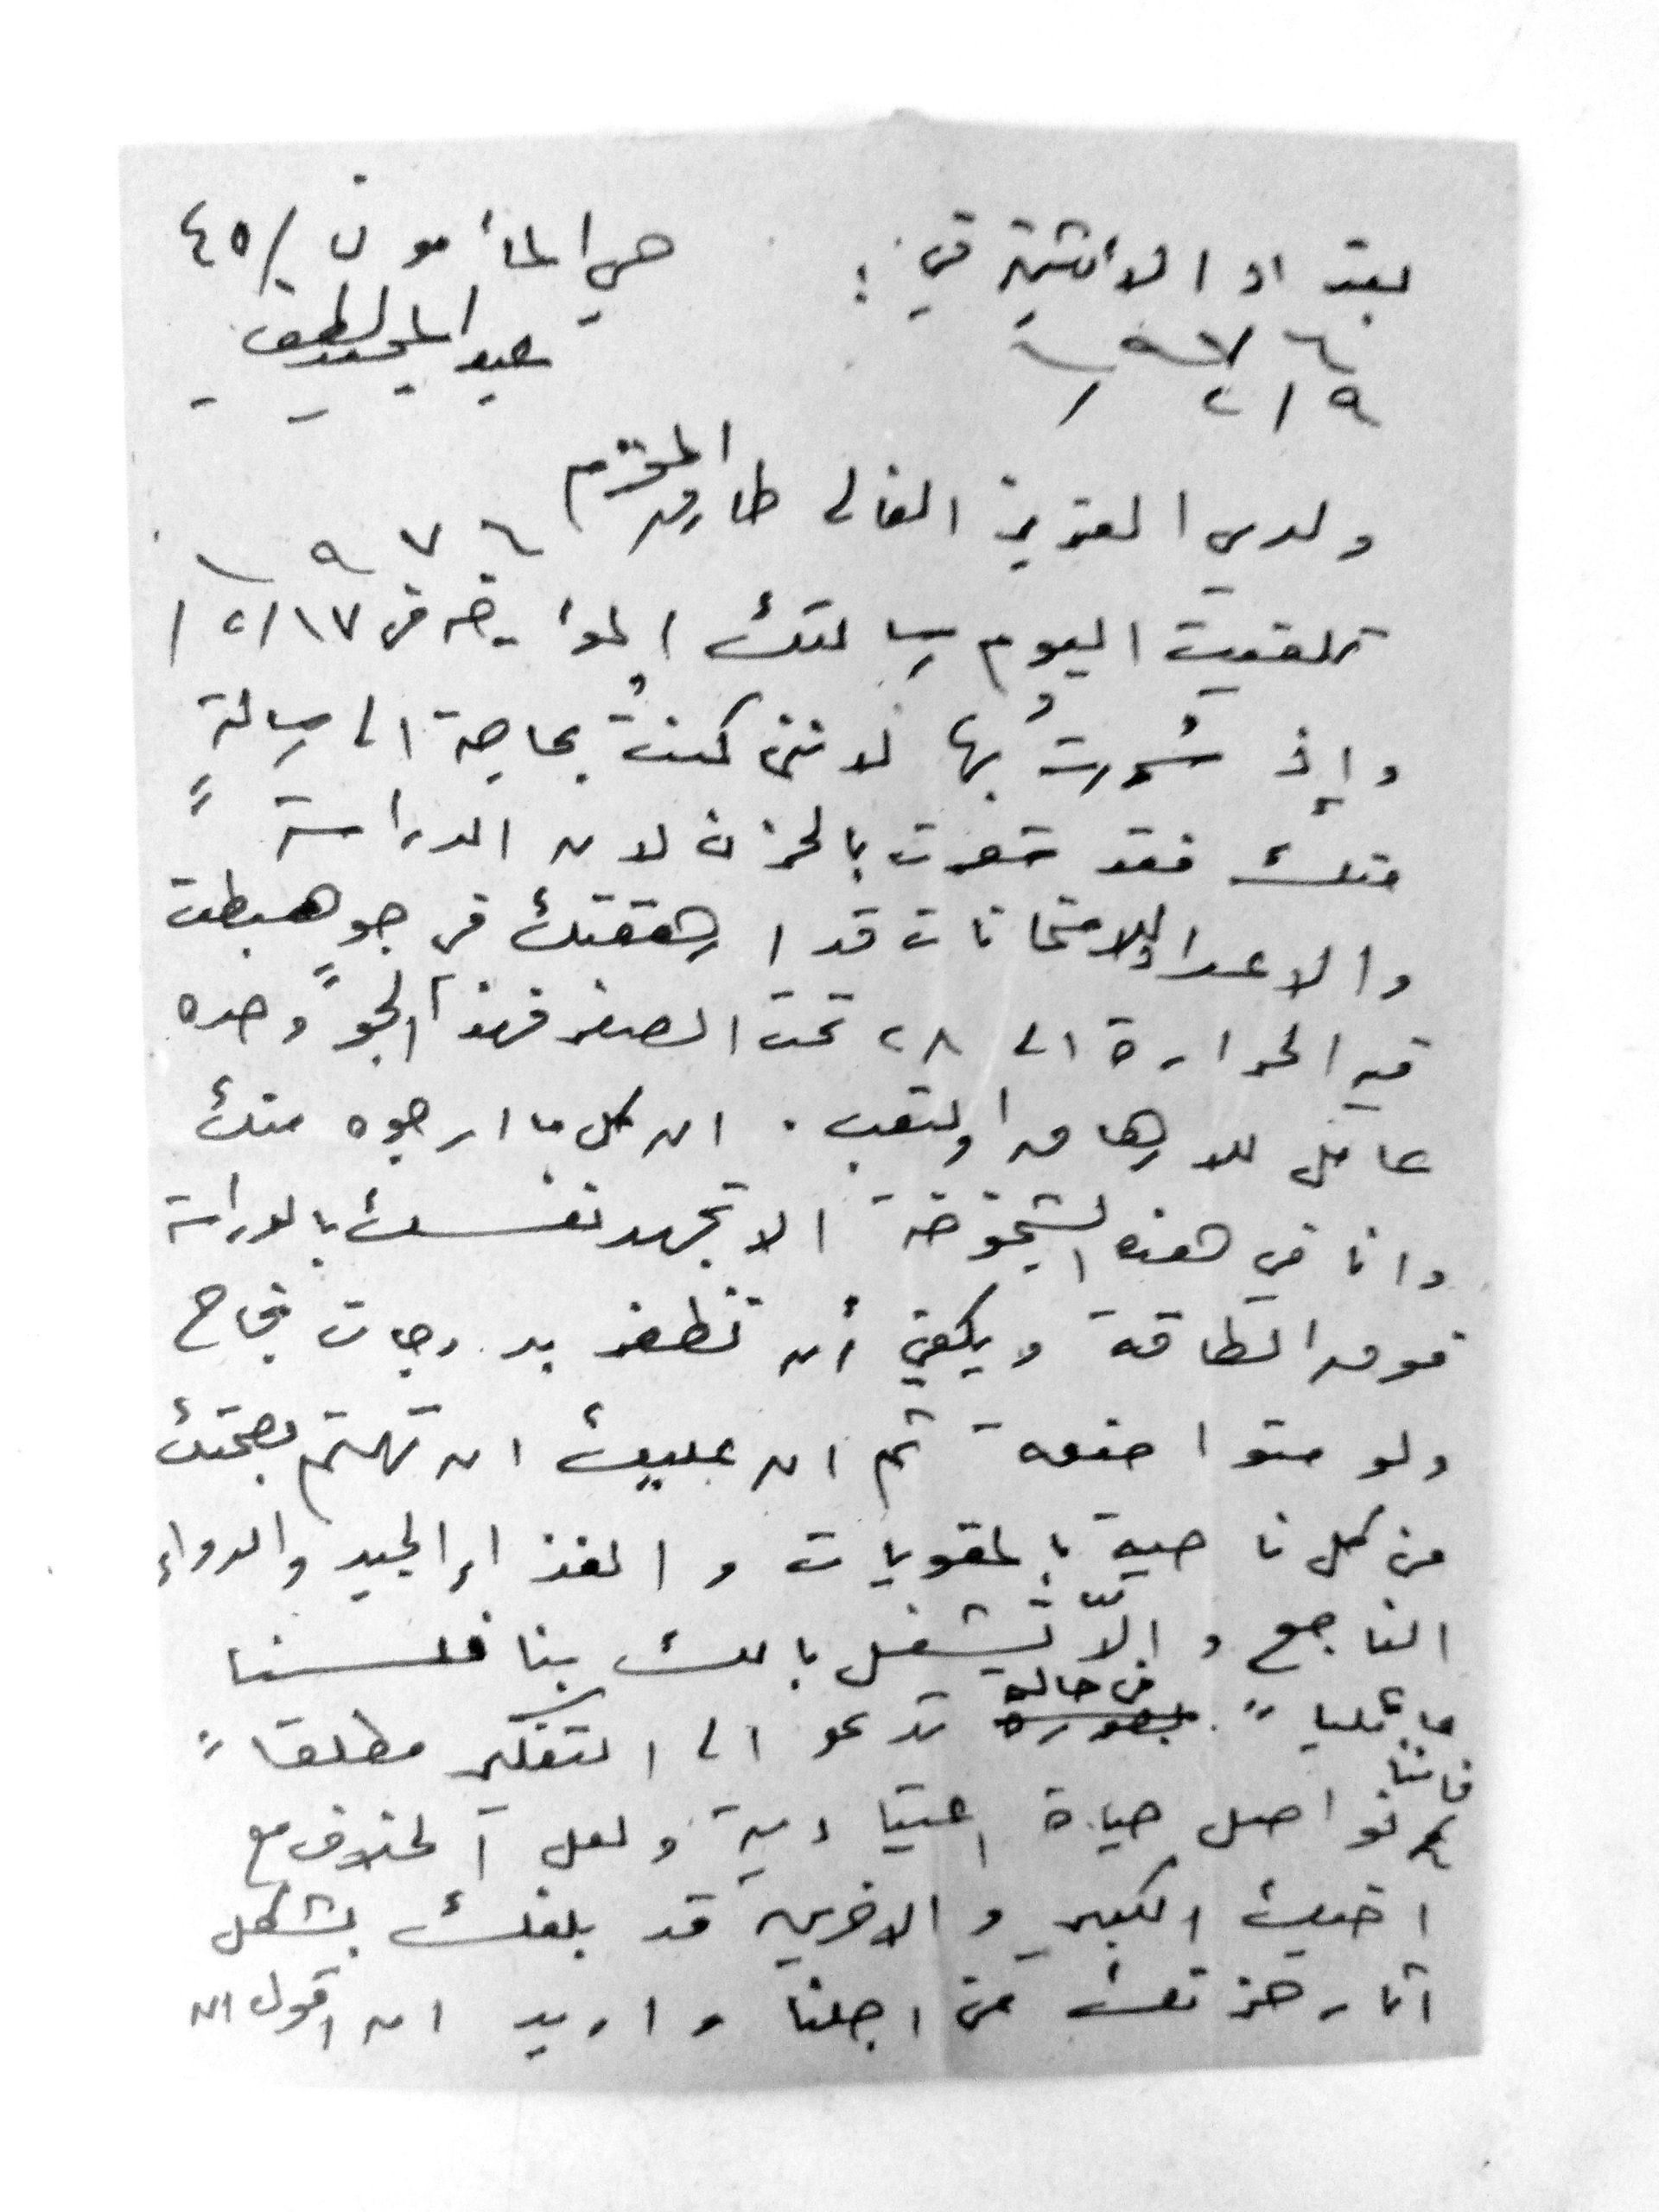 بغداد الاثنين في: حي المأمون / ٤٥
١٩٧٦ عبد المجيد لطفي
٩ / ٢ /
ولدي العزيز الغالي طارق المحترم
١٩٧٦
تلقيت اليوم رسالتك المؤرخة في ١٧ / ١
وإذ سُررتُ بها لانني كنتُ بحاجة الى رسالةٍ
منك فقد شعرت بالحزن لان الدراسة
والاعداد للامتحانات قد ارهقتك في جوٍ هبطت
فيه الحرارة الى ٢٨ تحت الصفر فهذا الجو وحده
عامل للارهاق والتعب . ان كل ما ارجوه منك
وانا في هذه الشيخوخة الا تجهد نفسك بالدراسة
فوق الطاقة ويكفي أن تظفر بدرجات نجاح
ولو متواضعة ثم ان عليك ان تهتم بصحتك
من كل ناحية بالمقويات والغذاء الجيد والدواء
الناجع والاّ تشغل بالك بنا فلسنا
عائلياً بصورة في حالة تدعو الى التفكير مطلقاً
فاننا نواصل حياة اعتيادية ولعل الخلاف مع
اخيك الكبير والاخرين قد بلغك بشكل
آثار حزنك من اجلنا واريد ان اقول ان